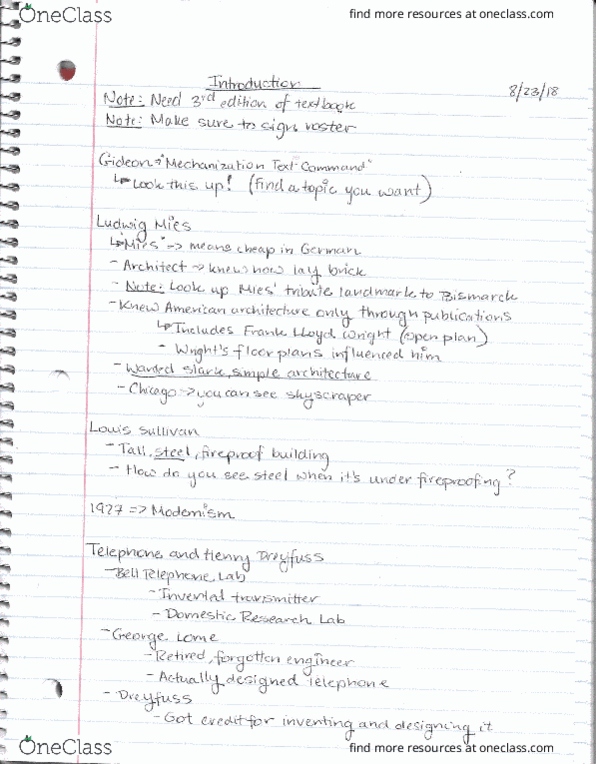 OneClass
find more resources at oneclass.com
Introduction
8/23/18
Note: Need 3rd edition of textbook
Note: Make sure to sign roster
Gideon → "Mechanization Text Command"
↳ Look this up! (find a topic you want)
Ludwig Mies
↳ "Mies" => means cheap in German
- Architect → knew how lay brick
- Note: Look up Mies' tribute landmark to Bismarck
- Knew American architecture only through publications
↳ Includes Frank Lloyd Wright (open plan)
- Wright's floor plans influenced him
- Wanted stark, simple architecture
- Chicago → you can see skyscraper
Louis Sullivan
- Tall, steel, fireproof building
- How do you see steel when it's under fireproofing?
1927 => Modernism
Telephone and Henry Dreyfuss
- Bell Telephone Lab
- Invented transmitter
- Domestic Research Lab
- George Lome
- Retired, forgotten engineer
- Actually designed telephone
- Dreyfuss
- Got credit for inventing and designing it
OneClass
find more resources at oneclass.com